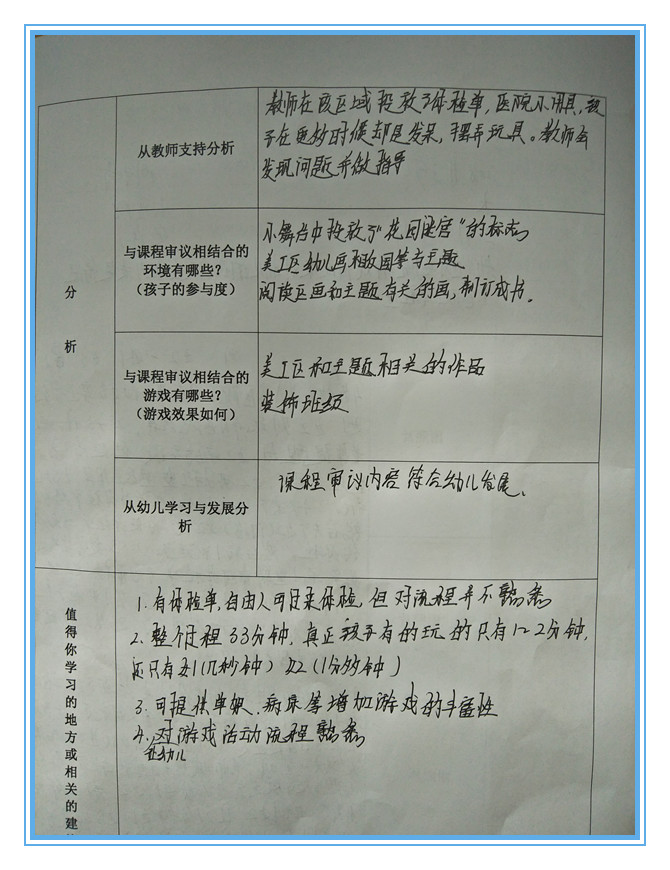 分析
从教师支持分析
教师在该区域投放了体检单,医院小用具,孩
子在更好时候却是发呆,摆弄玩具。教师会
发现问题并做指导
与课程审议相结合的
环境有哪些?
(孩子的参与度)
小舞台中投放了"花园 "的标志
美工区幼儿画和 主题
阅读区画和主题有关的画,制订成书.
与课程审议相结合的
游戏有哪些?
(游戏效果如何)
美工区和主题相关的作品
装饰班级
从幼儿学习与发展分
析
课程审议内容符合幼儿发展、
值得你学习的地方或相关的建
1.有体检单,自由人可过来体检,但对流程并不熟悉
2.整个过程33分钟,真正孩子有的玩的只有1~2分钟,
还只有 1(几秒钟) 2(1分多钟)
3.可提供单架、病床等增加游戏的丰富性
4.对游戏活动流程熟悉
幼儿